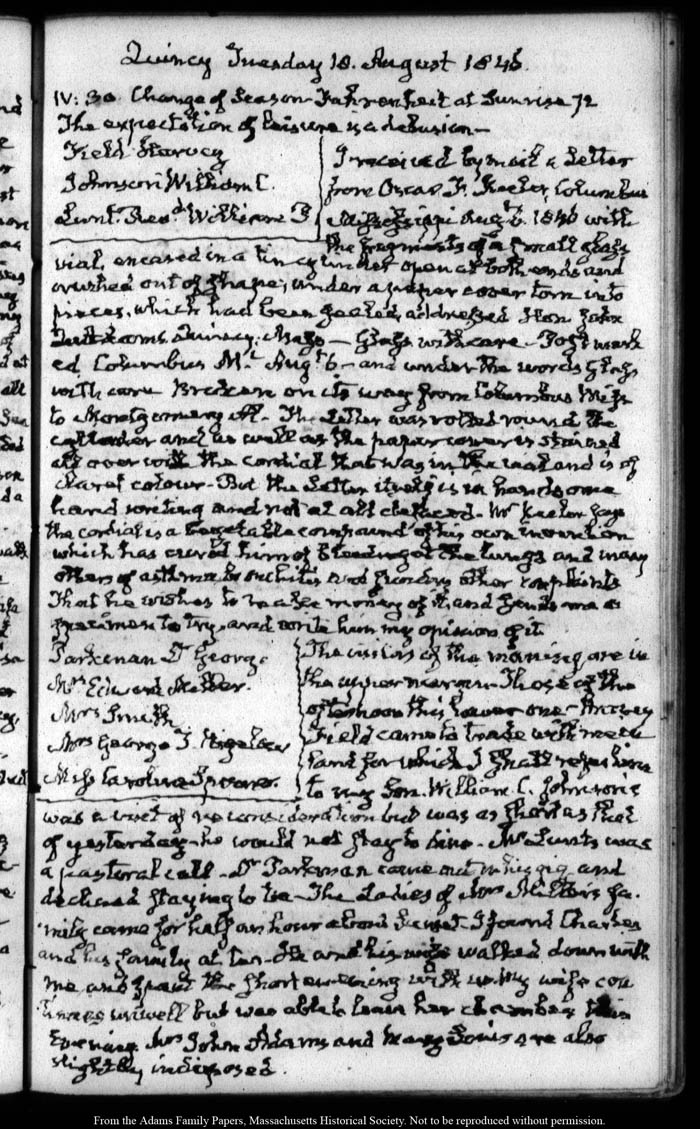 Quincy Tuesday 18. August 1846.
IV: 30. Change of Season Fahrenheit at Sunrise 72
The expectation of leisure is a delusion —
Field Harvey
Johnson William C.
Lunt. Revd. William P.
I received by mail a Letter
from Oscar F. Keeler, Columbus
Mississippi Aug. 6. 1846 with
the fragments of a small glass
vial, encased in a tin cylinder open at both ends and
crushed out of shape, under a paper cover torn into
pieces, which had been sealed, addressed Hon John
Q. Adams Quincy, Mass — Glass with care — Post mark
ed, Columbus Mi. Augt. 6 — and under the words Glass
with care Broken on its way from Columbus Miss
to Montgomery Al. The Letter was rolled round the
cylinder and as well as the paper cover is stained
all over with the cordial that was in the vial and is of
claret colour. But the Letter itself is in handsome
hand writing and not at all defaced. Mr Keeler says
the cordial is a vegetable compound of his own invention
which has cured him of bleeding at the lungs and many
others of asthma bronchitis and sundry other complaints
That he wishes to make money of it, and sends me a
specimen to try, and write him my opinion of it
Parkman Dr George.
Mrs Edward Miller.
Mrs Smith
Mrs George T. Bigelow
Miss Caroline
The visitors of the morning are in
the upper margin. Those of the
afternoon this lower one — Harvey
Field came to trade with me
land for which I shall refer him
to my Son. William C. Johnson's
was a visit of
consideration but was as short as that
of yesterday — he would not stay to dine. Mr Lunt's was
a pastoral call — Dr Parkman came out in his gig and
declined staying to tea. The Ladies of Mrs Miller's fa.
mily came for half an hour about Sunset. I found Charles
and his family at
He and his wife walked down with
me and spent the short evening with us. My wife con
tinues unwell but was able to leave her chamber this
Evening. Mrs John Adams and Mary Louisa are also
slightly indisposed.
From the Adams Family Papers, Massachusetts Historical Society. Not to be reproduced without permission.